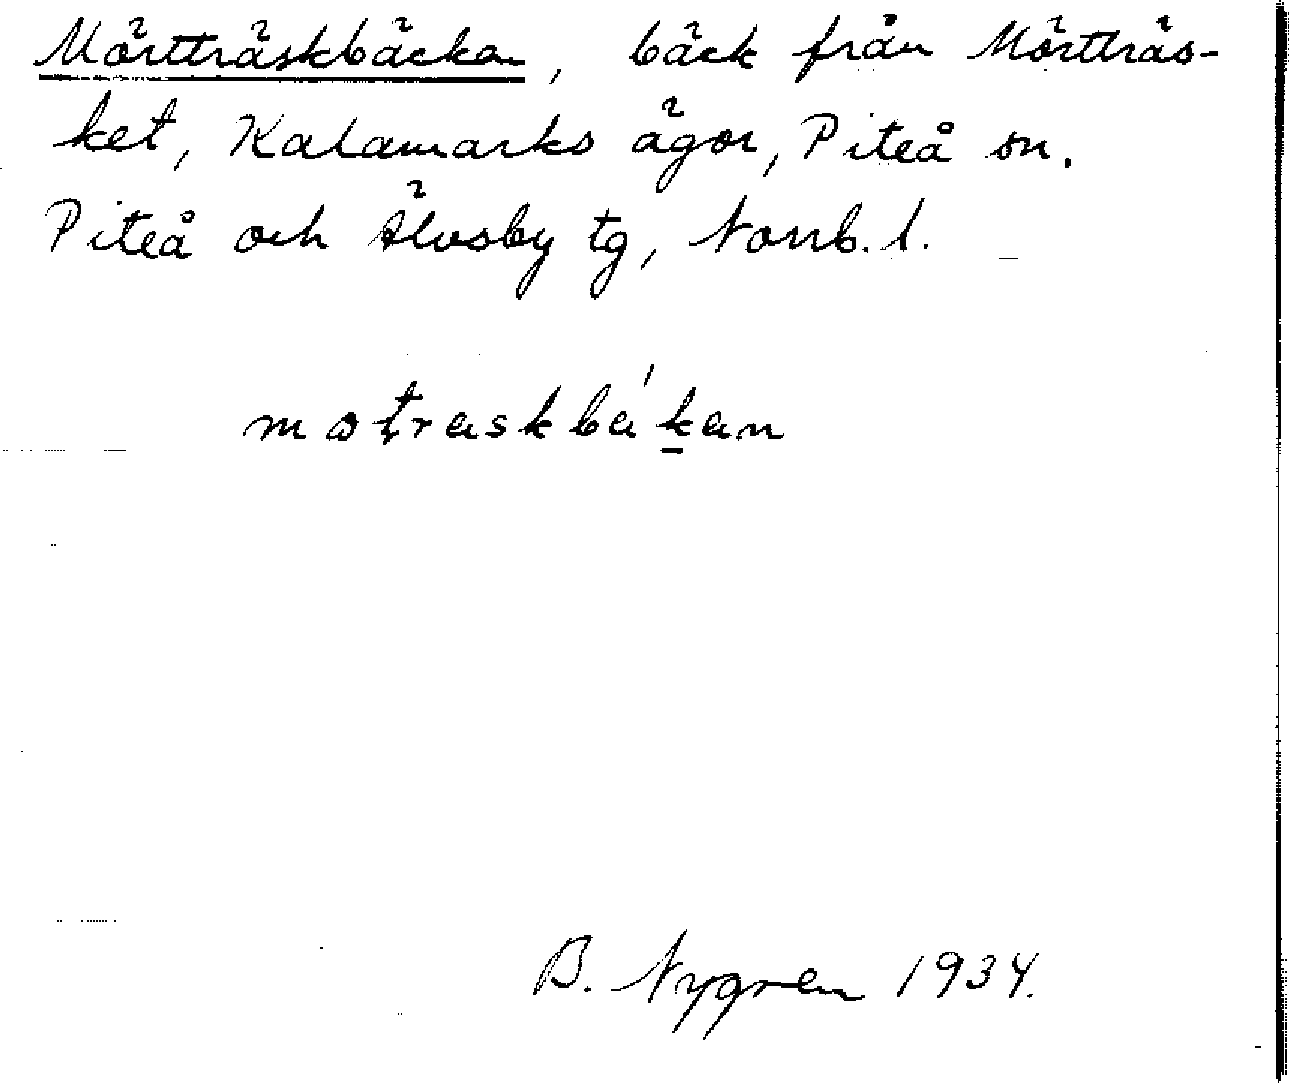 Mörtträskbäcken, bäck från Mörtträs-
ket, Kalamarks ägor, Piteå sn.
Piteå och Älvsby tg, Norrb. l.
motraskbákan
B. Nygren 1934.